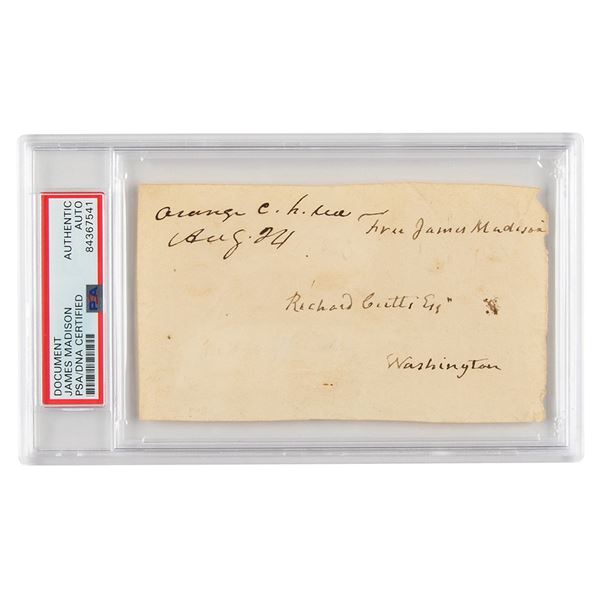 DOCUMENT
JAMES MADISON
PSA/DNA CERTIFIED
AUTHENTIC
AUTO
84367541
PSA
Orange C. h. Va
Aug. 24
Free James Madison
Richard Cutts Esqr
Washington